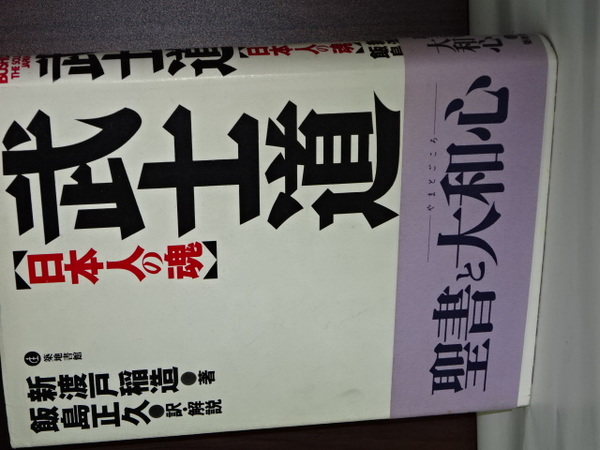 武士道
【日本人の魂】
新渡戸稲造●著
飯島正久●訳・解説
築地書館
やまとごころ
聖書と大和心
武士道
【日本人の魂】
大和心